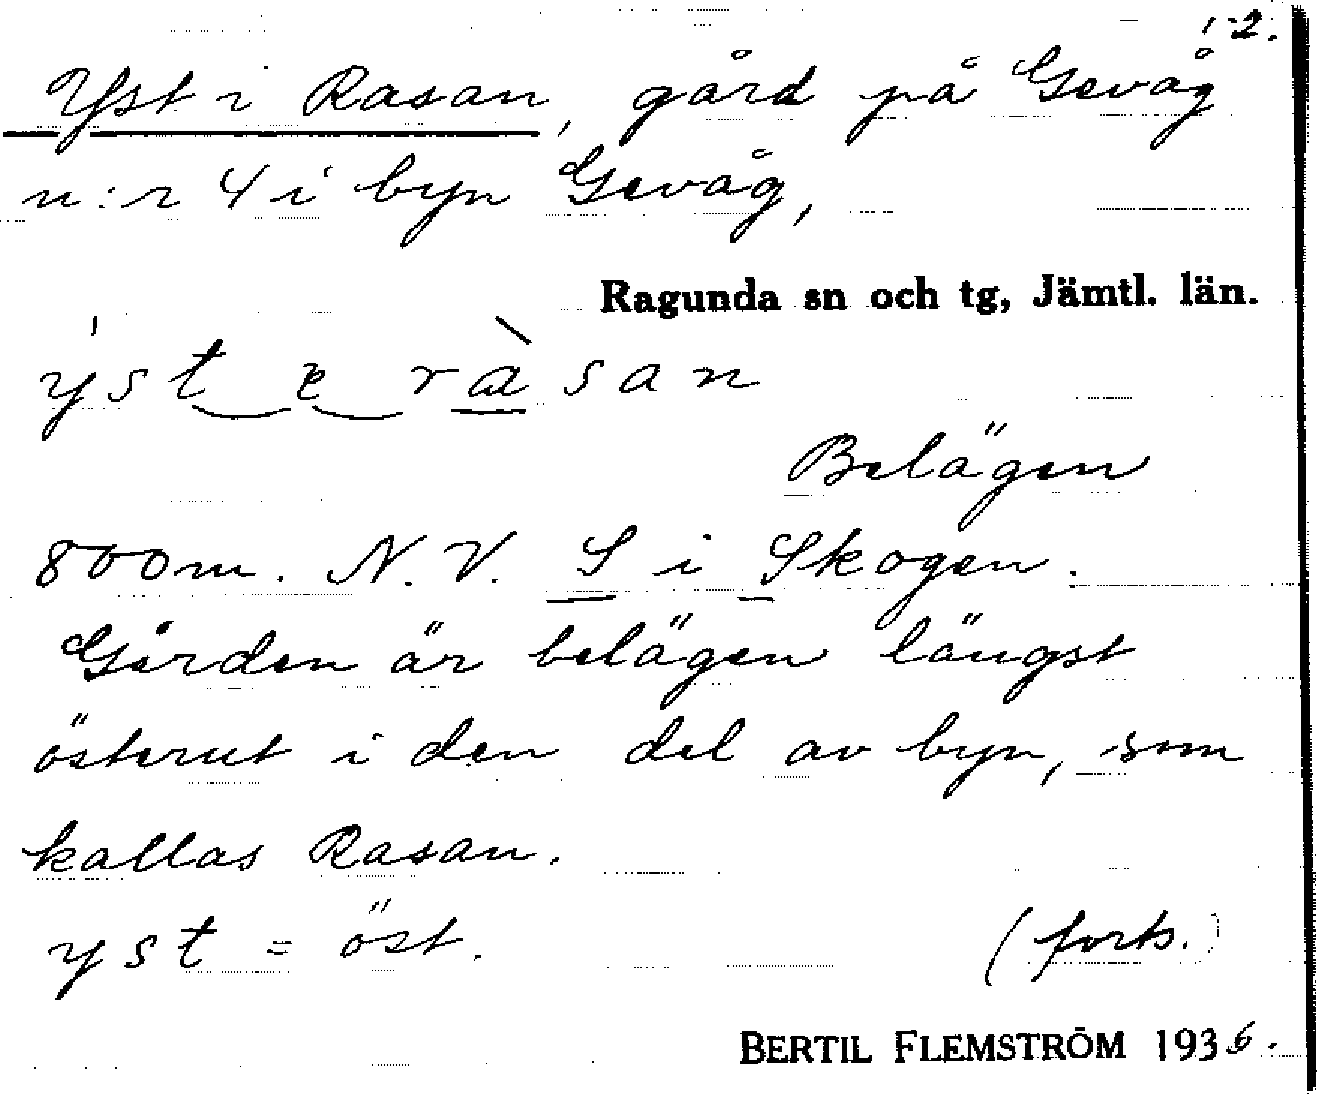 1-2.
Yst i Rasan, gård på Gevåg
n:r 4 i byn Gevåg,
Ragunda sn och tg, Jämtl. län.
ýst e ràsan
Belägen
800 m. N.V. S i Skogen.
Gården är belägen längst
österut i den del av byn, som
kallas Rasan.
yst = öst.
(forts.)
BERTIL FLEMSTRÖM 1936.